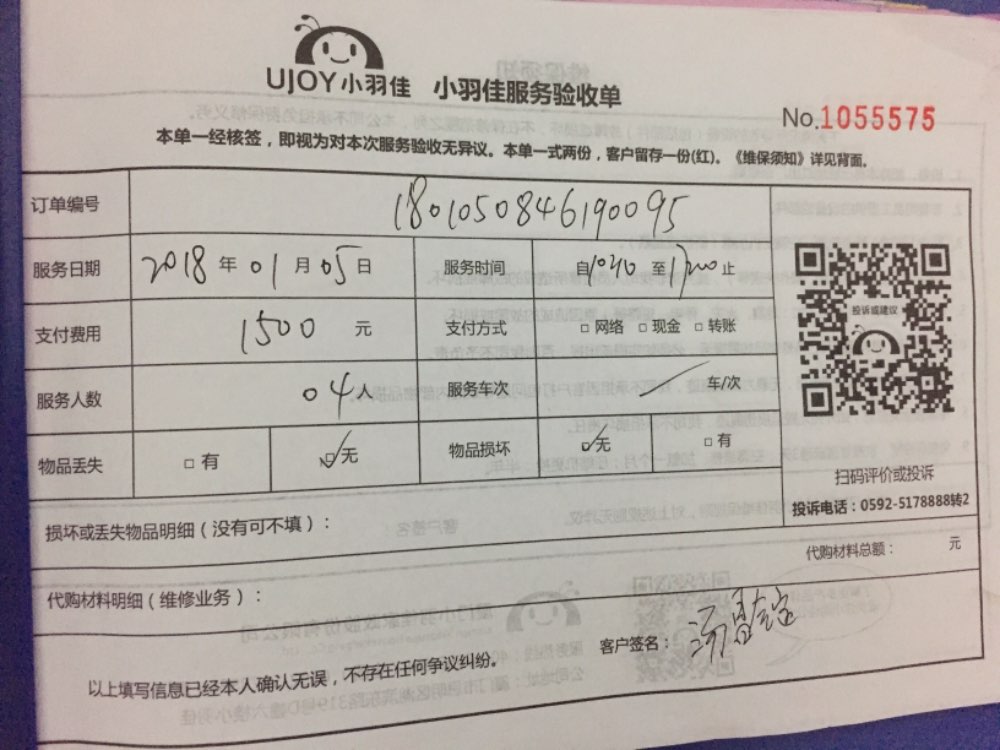 UJOY小羽佳 小羽佳服务验收单
No.1055575
本单一经核签，即视为对本次服务验收无异议。本单一式两份，客户留存一份(红)。《维保须知》详见背面。
订单编号 1801050846190095
服务日期 2018 年 01 月 05 日 服务时间 自1040 至1200止
支付费用 1500 元 支付方式 □ 网络 □ 现金 □ 转账
投诉或建议
服务人数 04人 服务车次 车/次
物品丢失 □ 有 ☑ 无 物品损坏 ☑ 无 □ 有
扫码评价或投诉
投诉电话：0592-5178888转2
损坏或丢失物品明细（没有可不填）：
代购材料总额： 元
代购材料明细（维修业务）：
客户签名：
以上填写信息已经本人确认无误，不存在任何争议纠纷。